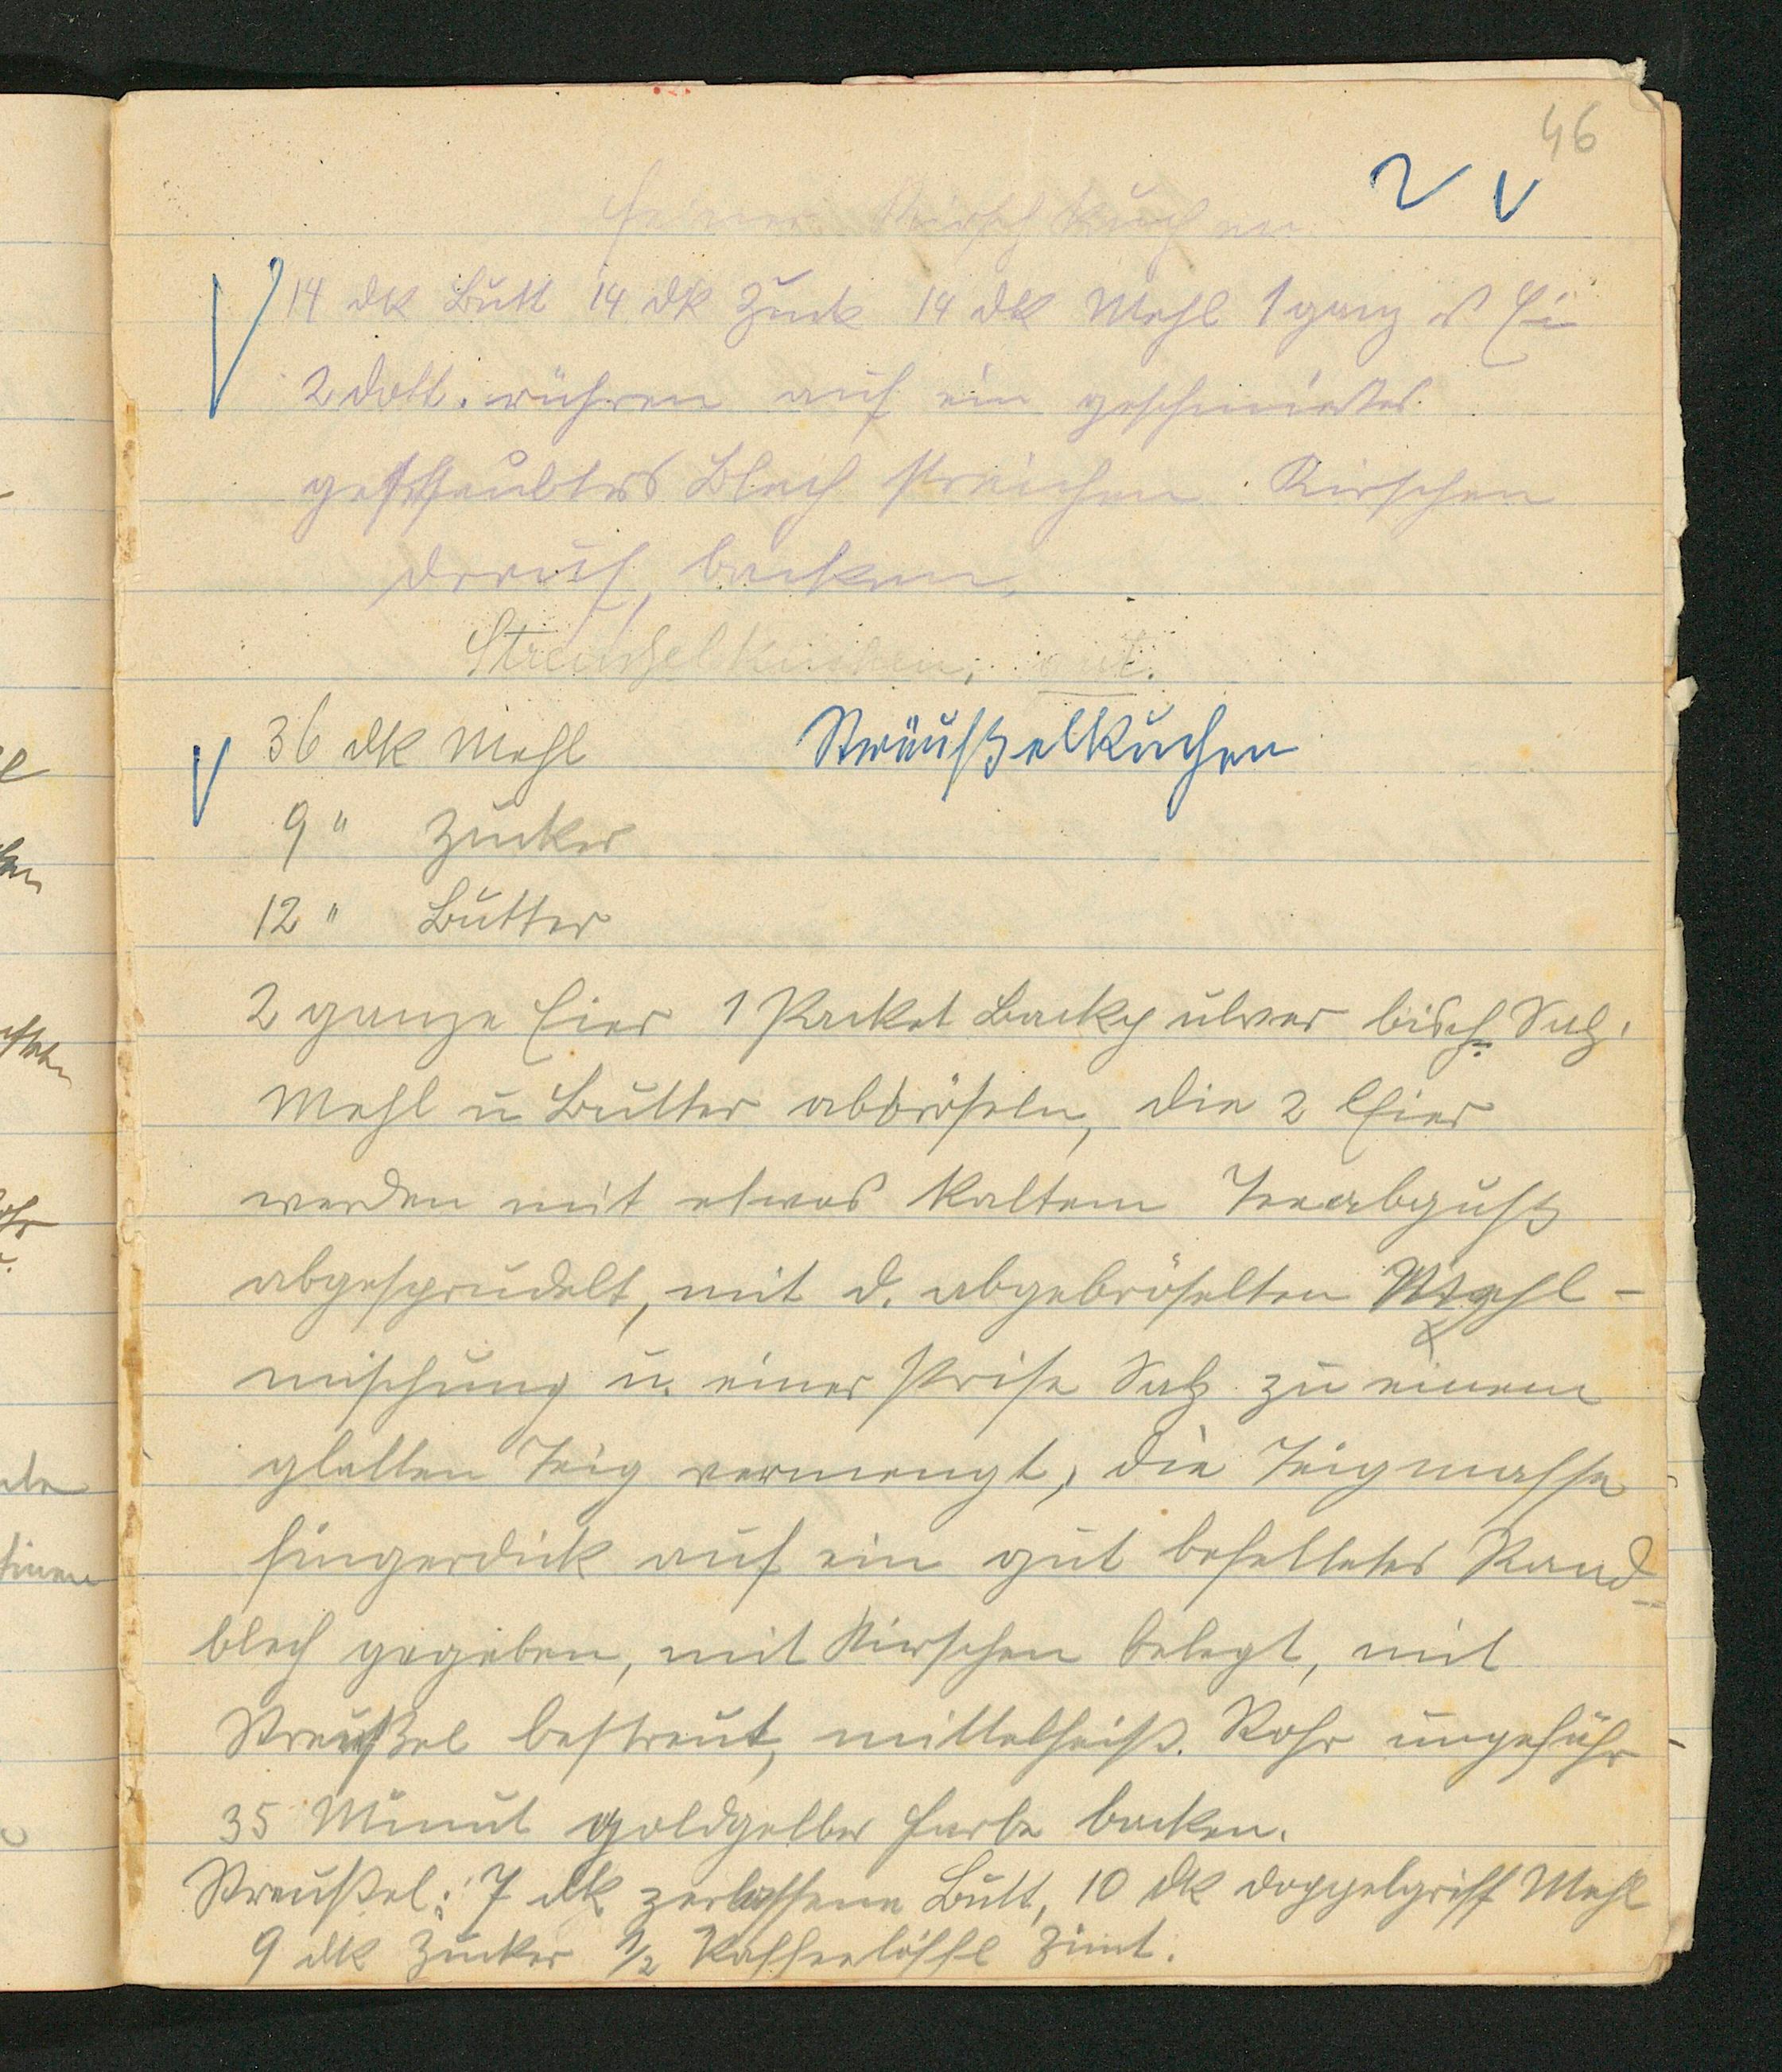 46
feiner Kirschkuchen
14 dk Butt 14 dk Zuck 14 dk Mehl 1 ganzes Ei
2 Dott. rühren auf ein geschmiertes
gestaubtes Blech streichen Kirschen
drauf, backen.
Streuselkuchen, gut.
36 dk Mehl Sträußelkuchen
9 " Zucker
12 " Butter
2 ganze Eier 1 Packet Backpulver bisch Salz.
Mehl u Butter abbröseln, die 2 Eier
werden mit etwas kaltem Teeabguß
abgesprudelt, mit d. abgebröselten Mehl-
mischung u. einer Prise Salz zu einem
glatten Teig vermengt, die Teigmasse
fingerdick auf ein gut befettetes Rand-
blech gegeben, mit Kirschen belegt, mit
Streußel bestreut, mittelheiß. Rohr ungefähr
35 Minut goldgelber Farbe backen.
Streußel: 7 dk zerlassene Butt, 10 dk doppelgriff Mehl
9 dk Zucker 1/2 Kaffeelöffl Zimt.